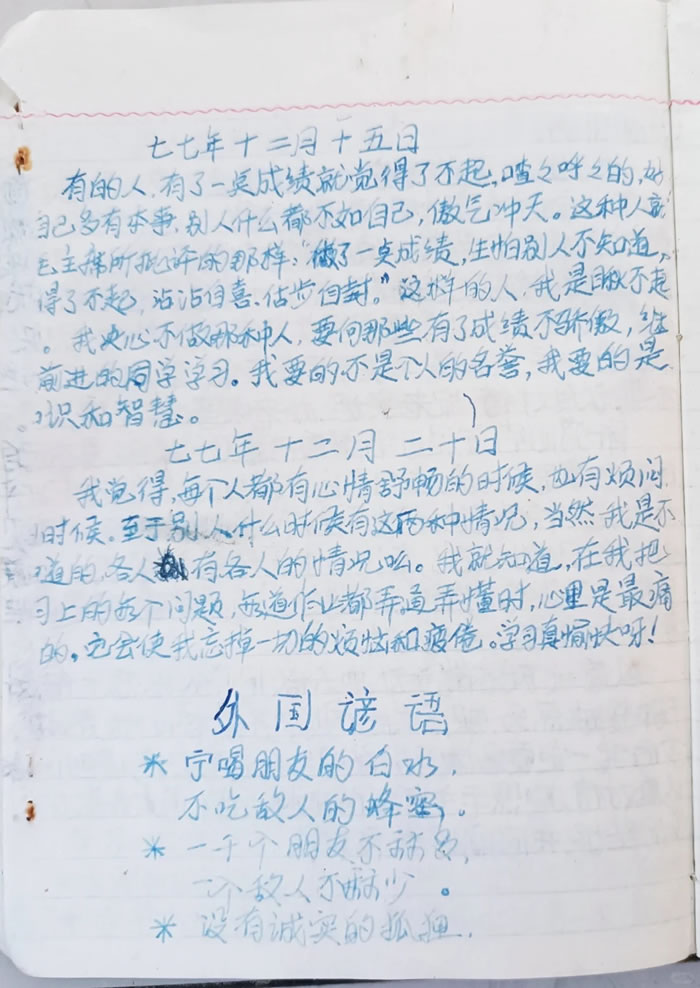 七七年十二月十五日
有的人,有了一点成绩就觉得了不起,喳々呼々的,好
自己多有本事,别人什么都不如自己,傲气冲天。这种人就
毛主席所批评的那样:“做了一点成绩,生怕别人不知道,
得了不起,沾沾自喜.估步自封。”这样的人,我是瞧不起
。我决心不做那种人,要向那些有了成绩不骄傲,继
前进的同学学习。我要的不是个人的名誉,我要的是
识和智慧。
七七年十二月二十日
我觉得,每个人都有心情舒畅的时候,也有烦闷
时候.至于别人什么时候有这两种情况,当然我是不
道的,各人有各人的情况吆。我就知道,在我把
习上的每个问题,每道作业都弄通弄懂时,心里是最痛
的,它会使我忘掉一切的烦恼和疲倦。学习真愉快呀!
外国谚语
* 宁喝朋友的白水,
不吃敌人的蜂蜜。
* 一千个朋友不算多,
一个敌人不算少。
* 没有诚实的狐狸.